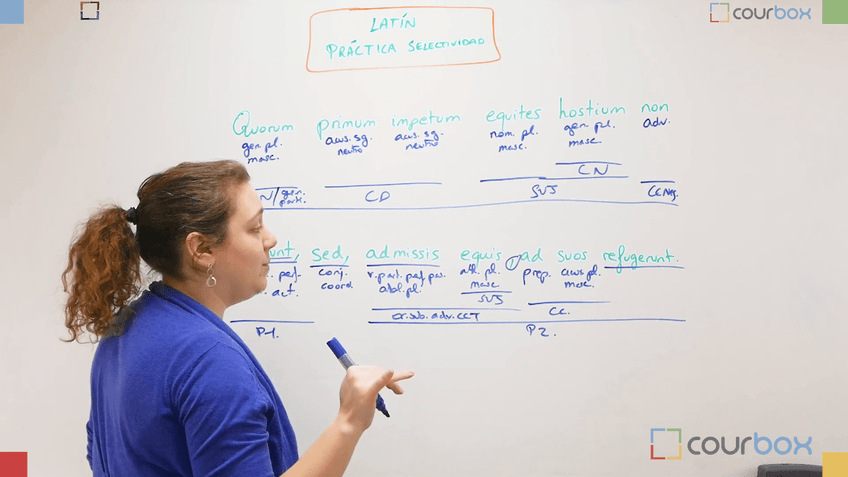 courbox
LATÍN
PRÁCTICA SELECTIVIDAD
Quorum primum impetum equites hostium non
gen. pl. acus. sg. acus. sg. nom. pl. gen. pl. adv.
masc. neutro neutro masc. masc.
CN
N/gen. CD SUJ CCNeg.
parti.
unt, sed, admissis equis ad suos refugerunt.
perf. conj. v. part. perf. pas. abl. pl. prep. acus. pl.
act. coord abl. pl. masc. masc.
SUJ
or. sub. adv. CCT CC.
P1. P2.
courbox